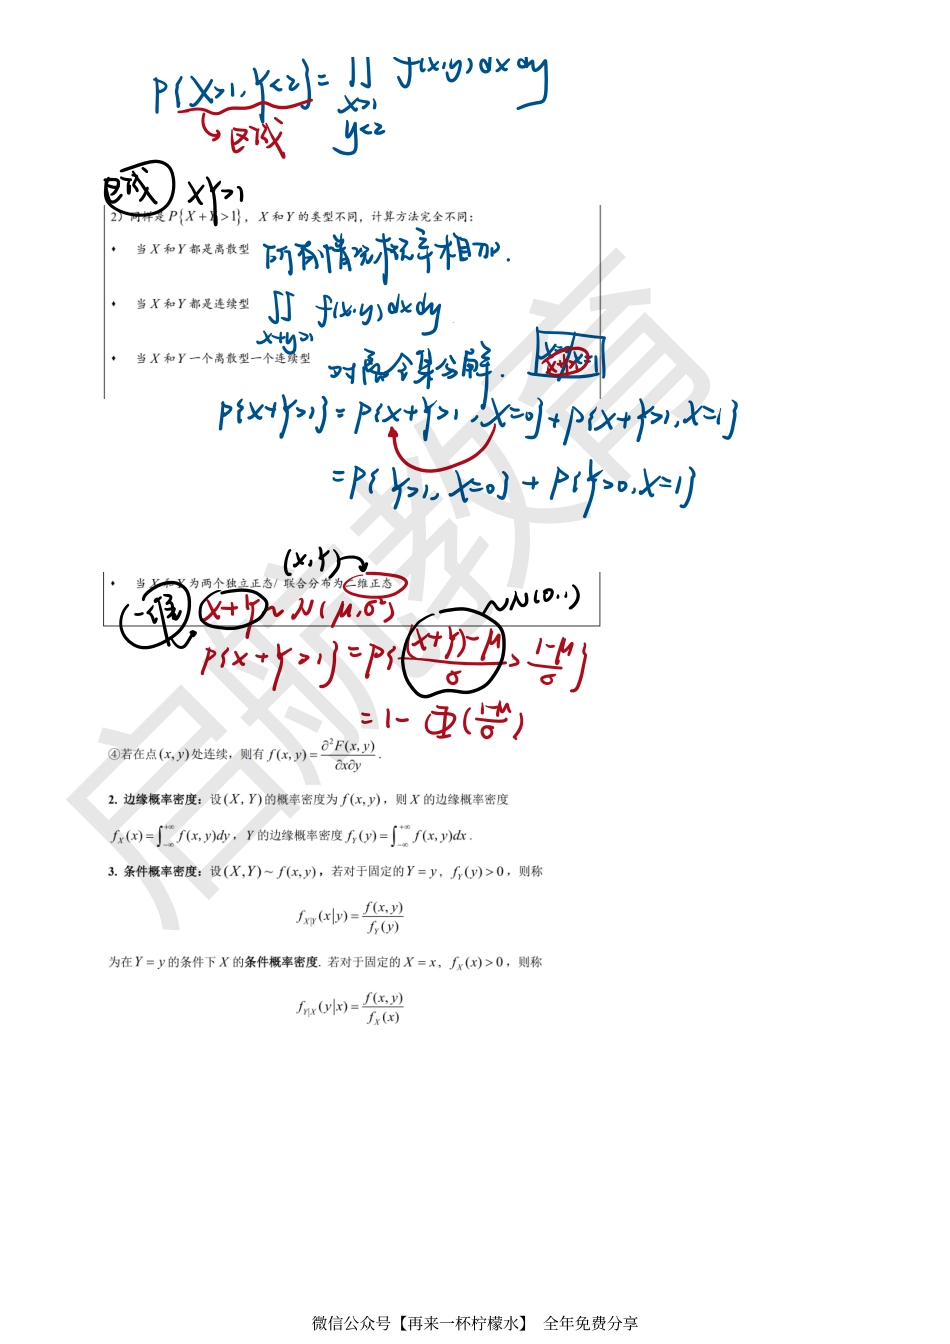 P{X>1, Y<2} = ∬ f(x,y)dxdy
x>1
y<2
→区域
区域 XY>1
2）同样是 P{X+Y>1}，X 和 Y 的类型不同，计算方法完全不同：
♦ 当 X 和 Y 都是离散型 所有情况概率相加.
♦ 当 X 和 Y 都是连续型 ∬ f(x,y)dxdy
x+y>1
♦ 当 X 和 Y 一个离散型一个连续型 对离全集分解.
P{X+Y>1} = P{X+Y>1, X=0} + P{X+Y>1, X=1}
= P{Y>1, X=0} + P{Y>0, X=1}
(X,Y)
♦ 当 X 和 Y 为两个独立正态/ 联合分布为二维正态
一维 X+Y ~ N(μ,σ²) ~N(0,1)
P{X+Y>1} = P{(X+Y)-μ / σ > 1-μ / σ}
= 1- Φ(1-μ / σ)
④若在点(x, y)处连续，则有 f(x, y) = ∂²F(x, y) / ∂x∂y .
2. 边缘概率密度：设(X, Y)的概率密度为 f(x, y)，则 X 的边缘概率密度
f_X(x) = ∫_{-∞}^{+∞} f(x, y)dy，Y 的边缘概率密度 f_Y(y) = ∫_{-∞}^{+∞} f(x, y)dx .
3. 条件概率密度：设(X,Y) ~ f(x, y)，若对于固定的 Y = y，f_Y(y) > 0，则称
f_{X|Y}(x|y) = f(x, y) / f_Y(y)
为在 Y = y 的条件下 X 的条件概率密度. 若对于固定的 X = x，f_X(x) > 0，则称
f_{Y|X}(y|x) = f(x, y) / f_X(x)
启航教育
微信公众号【再来一杯柠檬水】 全年免费分享